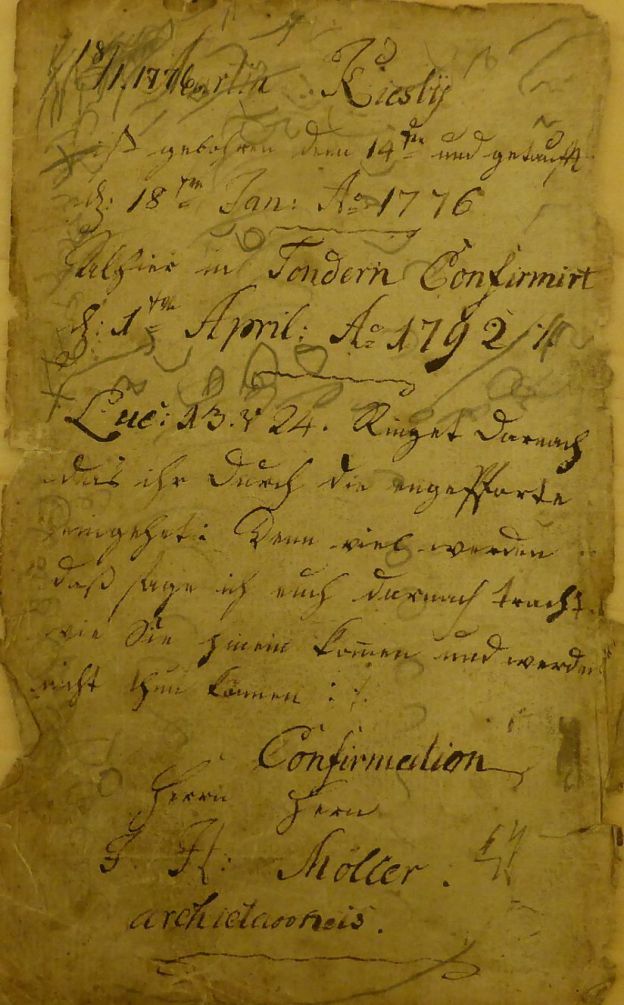 18/1.1776 Martin Kiesby
ist gebohren denn 14te und getaufft
d: 18te Jan: Ao 1776
Alhier in Tondern Confirmirt
d: 1te April: Ao 1792
Luc: 13. v 24. Ringet darnach
das ihr durch die enge Pforte
eingehet: Denn viel werden
daß sage ich euch darnach tracht
wie Sie hinein komen und werden
nicht thun können :/:
Confirmation
Herrn Hern
J. H: Möller.